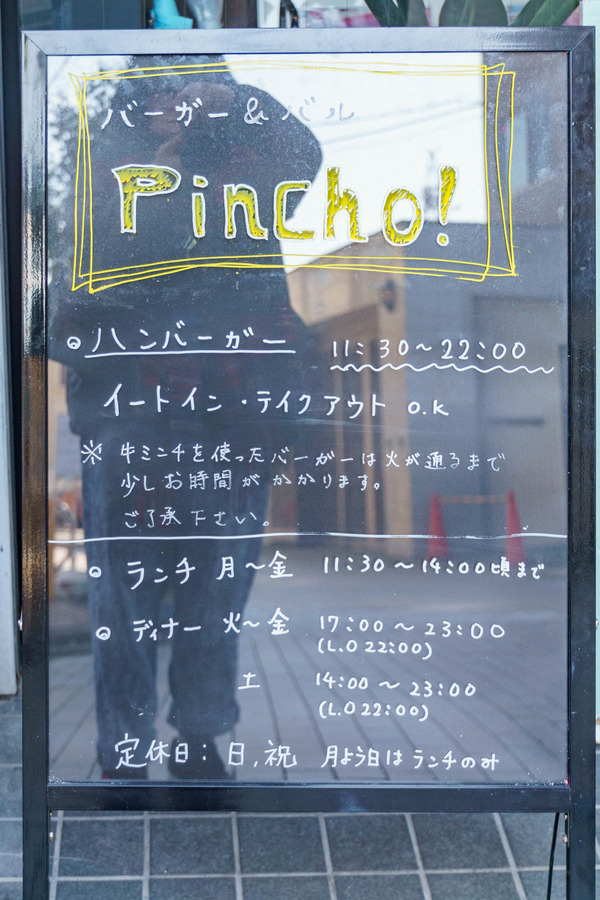 バーガー&バル
Pincho!
ハンバーガー 11:30〜22:00
イートイン・テイクアウト o.k
※ 牛ミンチを使ったバーガーは火が通るまで
少しお時間がかかります。
ご了承下さい。
ランチ 月〜金 11:30〜14:00頃まで
ディナー 火〜金 17:00〜23:00
(L.O 22:00)
土 14:00〜23:00
(L.O 22:00)
定休日: 日,祝 月よう日はランチのみ